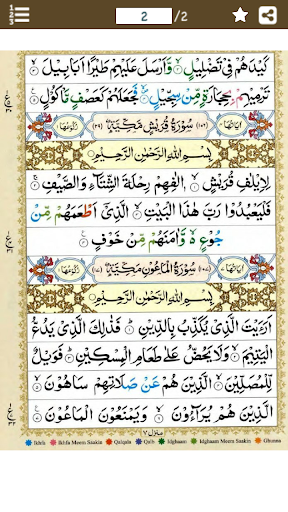 2 /2
كَيْدَهُمْ فِيْ تَضْلِيْلٍ ۙ وَّاَرْسَلَ عَلَيْهِمْ طَيْرًا اَبَابِيْلَ ۙ
تَرْمِيْهِمْ بِحِجَارَةٍ مِّنْ سِجِّيْلٍ ۙ فَجَعَلَهُمْ كَعَصْفٍ مَّاْكُوْلٍ
اٰيَاتُهَا ٤ (١٠٦) سُوْرَةُ قُرَيْشٍ مَّكِّيَّةٌ (٢٩) رُكُوْعُهَا ١
بِسْمِ اللّٰهِ الرَّحْمٰنِ الرَّحِيْمِ
لِاِيْلٰفِ قُرَيْشٍ ۙ اٖلٰفِهِمْ رِحْلَةَ الشِّتَآءِ وَالصَّيْفِ ۚ
فَلْيَعْبُدُوْا رَبَّ هٰذَا الْبَيْتِ ۙ الَّذِيْٓ اَطْعَمَهُمْ مِّنْ
جُوْعٍ ەۙ وَّاٰمَنَهُمْ مِّنْ خَوْفٍ
اٰيَاتُهَا ٧ (١٠٧) سُوْرَةُ الْمَاعُوْنِ مَكِّيَّةٌ (١٧) رُكُوْعُهَا ١
بِسْمِ اللّٰهِ الرَّحْمٰنِ الرَّحِيْمِ
اَرَءَيْتَ الَّذِيْ يُكَذِّبُ بِالدِّيْنِ ؕ فَذٰلِكَ الَّذِيْ يَدُعُّ
الْيَتِيْمَ ۙ وَلَا يَحُضُّ عَلٰى طَعَامِ الْمِسْكِيْنِ ؕ فَوَيْلٌ
لِّلْمُصَلِّيْنَ ۙ الَّذِيْنَ هُمْ عَنْ صَلَاتِهِمْ سَاهُوْنَ ۙ
الَّذِيْنَ هُمْ يُرَآءُوْنَ ۙ وَيَمْنَعُوْنَ الْمَاعُوْنَ
منزل ٧
Ikhfa Ikhfa Meem Saakin Qalqala Qalb Idghaam Idghaam Meem Saakin Ghunna